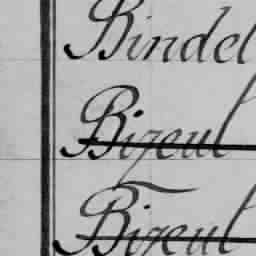 Bindel
Bizeul
Bizeul